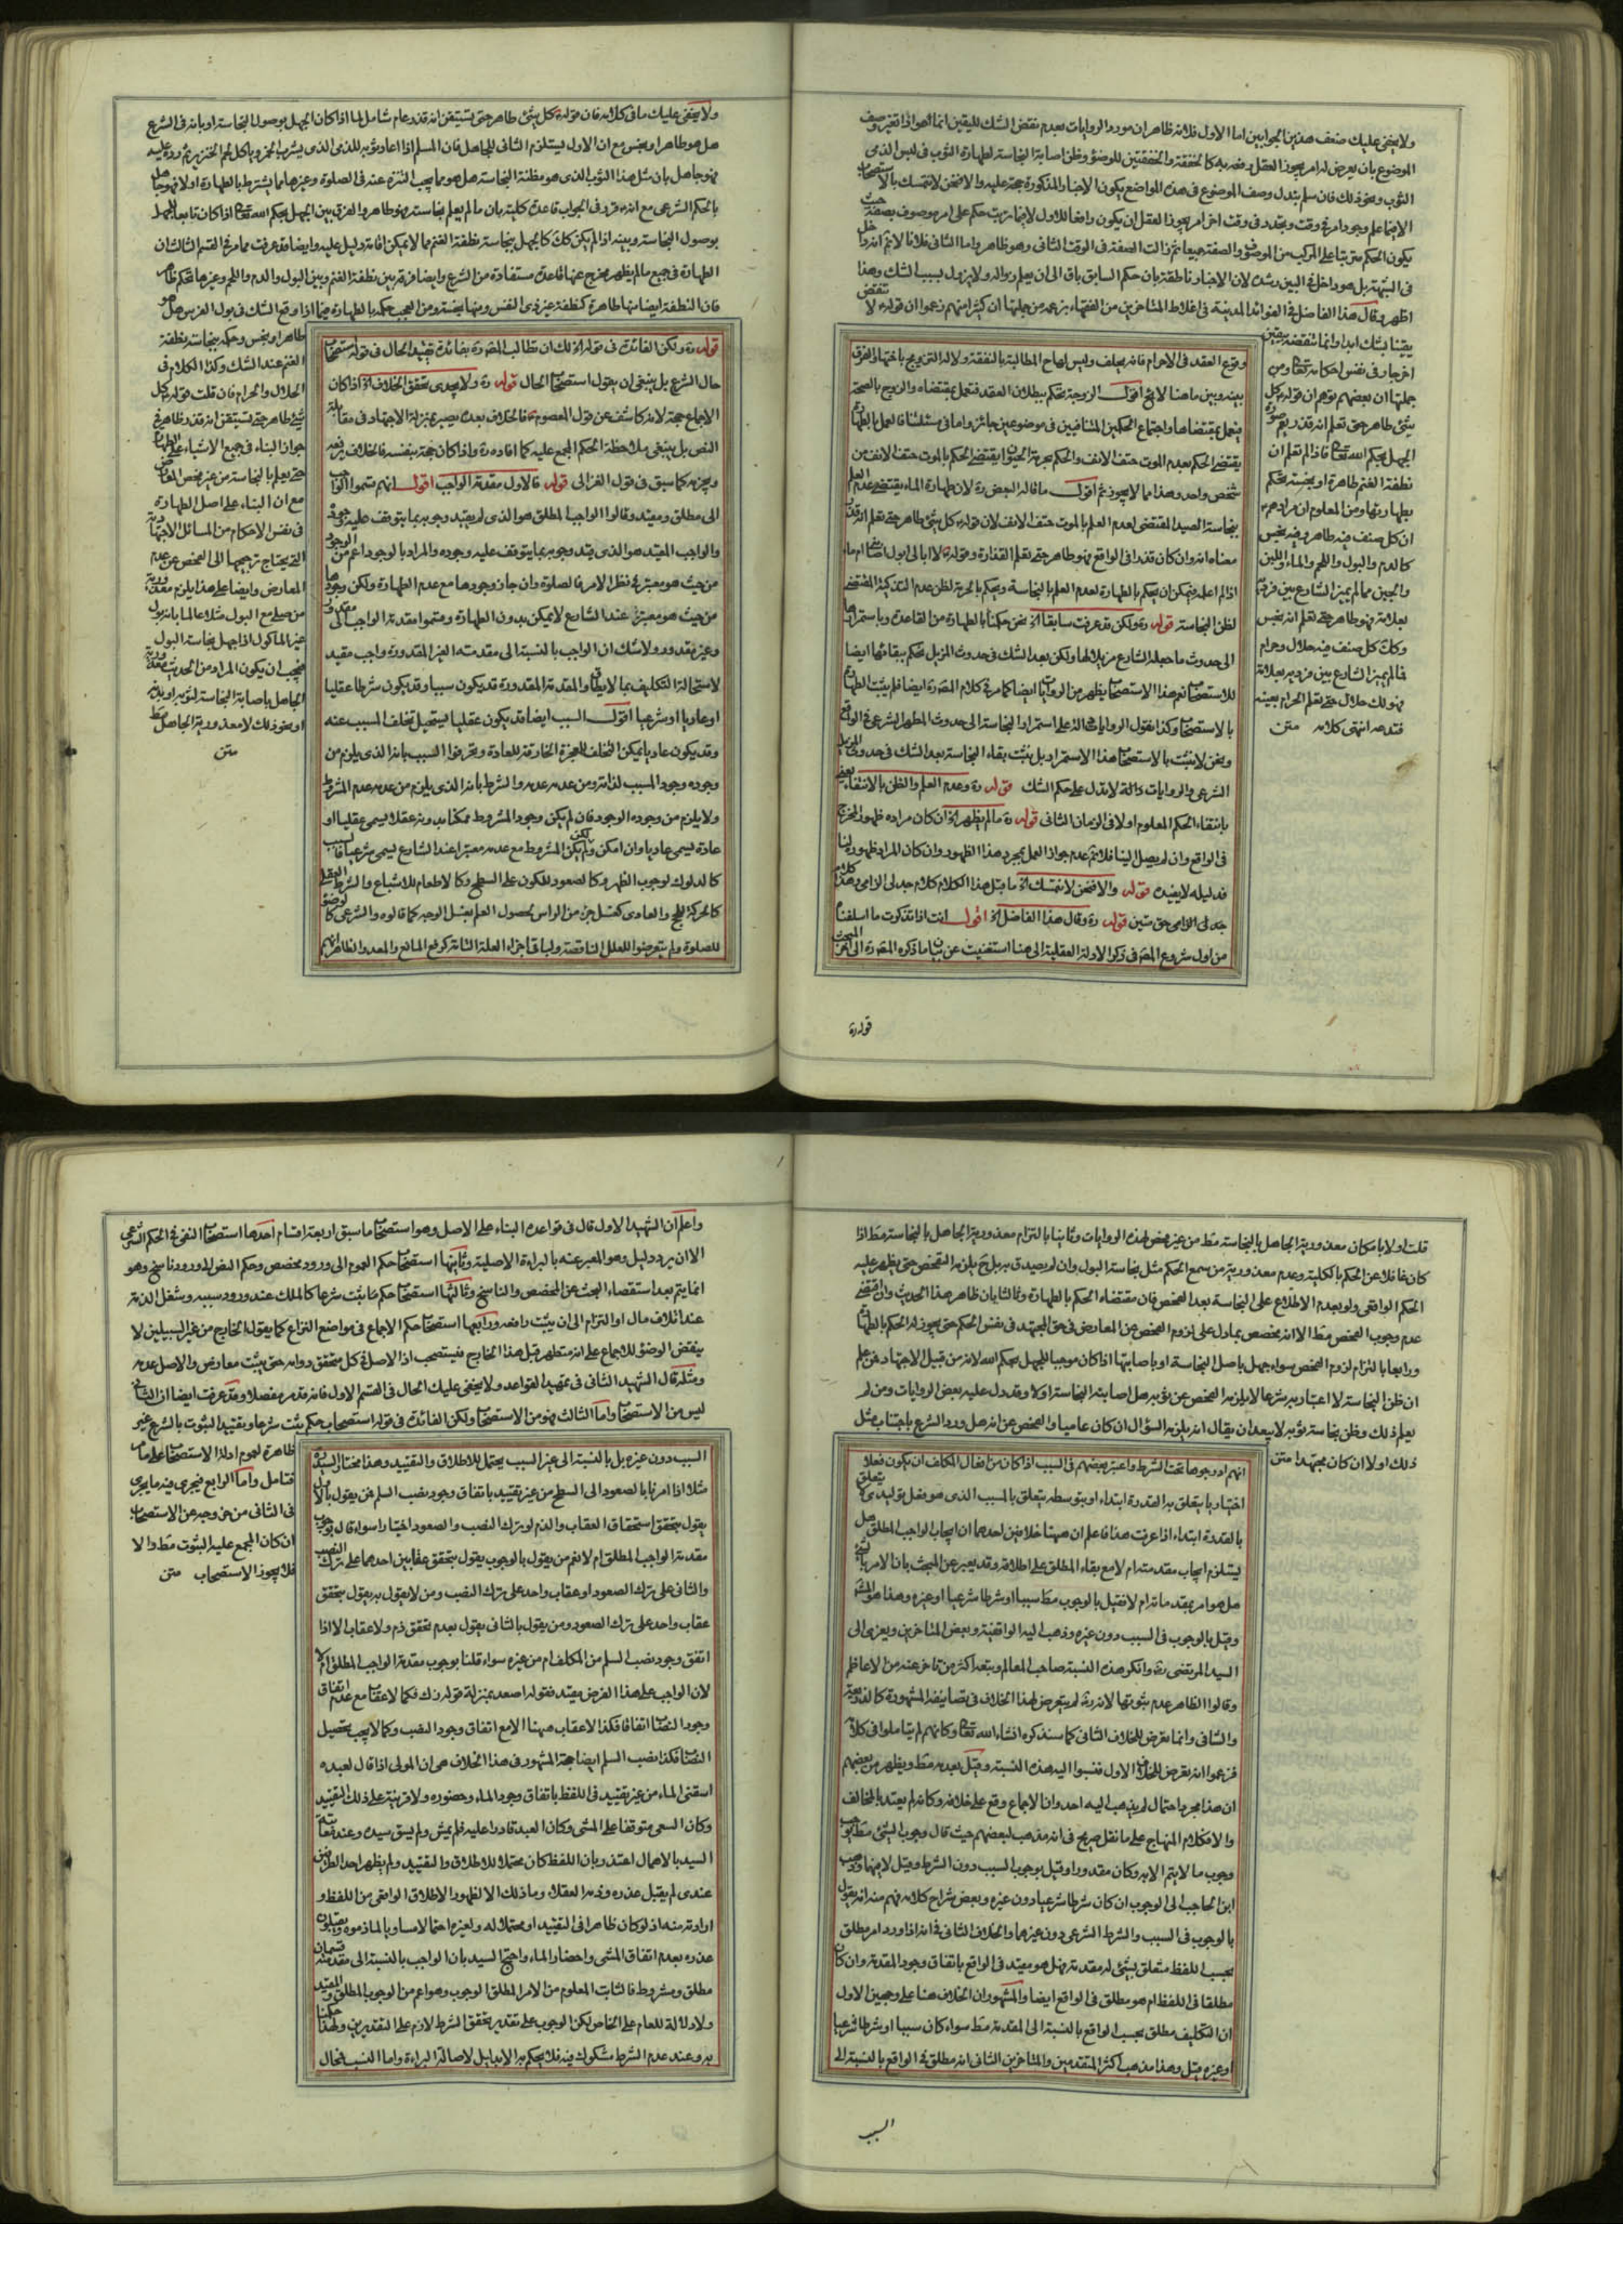 ولا يخفى عليك ضعف هذين الجوابين اما الاول فلانه ظاهر ان مورد الروايات بعدم نقض الشك لليقين انما هو اذا تغير وصف
الموضوع بان يعرض له امر يجوز العقل رفعه به كالخفقة والخفقتين للوضوء وظن اصابة النجاسة لطهارة الثوب في لبس الذمي
الثوب ونحو ذلك فان سلم تبدل وصف الموضوع في هذه المواضع يكون الاخبار المذكورة حجة عليه والا فنحن لا نتمسك بالاستصحاب
الا فيما علم وجود امر في وقت وتجدد في وقت اخر امر يجوز العقل ان يكون رافعا للاول لا فيما ترتب حكم على امر موصوف بصفة حيث
يكون الحكم مترتبا على المركب من الموصوف والصفة جميعا ثم زالت الصفة في الوقت الثاني وهو ظاهر واما الثاني فلانا لا نم انه داخل
في الشبهة بل هو داخل في البين رشده لان الاخبار ناطقة بان حكم السابق باق الى ان يعلم زواله ولا يزول بسبب الشك وهذا
اظهر وقال هذا الفاضل في الفوائد المدنية في اغلاط المتاخرين من الفقهاء بزعمه من جملتها ان كثيرا منهم زعموا ان قوله لا تنقض
يقينا بشك ابدا وانما تنقضه بيقين
اخر جار في نفس احكامه تعالى ومن
جملتها ان بعضهم توهم ان قوله كل
شئ طاهر حتى تعلم انه قذر يعم صورة
الجهل بحكم الله تعالى فاذا لم تعلم ان
نطفة الغنم طاهرة او نجسة تحكم
بطهارتها ومن المعلوم ان مرادهم
ان كل صنف فيه طاهر وفيه نجس
كالدم والبول واللحم والماء واللبن
والجبن مما لم يميز الشارع بين فرديه
بعلامة فهو طاهر حتى تعلم انه نجس
وكذلك كل صنف فيه حلال وحرام
فما لم يميز الشارع بين فرديه بعلامة
فهو لك حلال حتى تعلم الحرام بعينه
فتدعه انتهى كلامه منن
وقوع العقد في الاحرام فانه يحلف وليس لها ح المطالبة بالنفقة ولا له التزويج باختها والفرق
بينه وبين ما هنا لائح اقول الزوجة تحكم ببطلان العقد فتعمل بمقتضاه والزوج بالصحة
فيعمل بمقتضاها واجتماع الحكمين المتنافيين في موضوعين جائز واما في مسئلتنا فالعمل بالطهارة
يقتضي الحكم بعدم الموت حتف الانف والحكم بحرمة الحيوان يقتضي الحكم بالموت حتف الانف من
شخص واحد وهذا مما لا يجوز ثم اقول ما قاله البعض ره لان طهارة الماء يقتضي عدم العلم
بنجاسة الصيد المقتضي لعدم العلم بالموت حتف الانف لان قوله كل شئ طاهر حتى تعلم انه قذر
معناه انه وان كان قذرا في الواقع فهو طاهر حتى تعلم القذارة وقوله لا ابالي ابول اصابني ام ماء
اذا لم اعلم فيمكن ان يحكم بالطهارة لعدم العلم بالنجاسة ويحكم بالحرمة لظن عدم التذكية المقتضي
لظن النجاسة قوله ره ولكن قد عرفت سابقا الخ نحن حكمنا بالطهارة من القاعدة وباستمرارها
الى حدوث ما جعله الشارع مزيلا لها ولكن بعد الشك في حدوث المزيل نحكم ببقائها ايضا
للاستصحاب نعم هذا الاستصحاب يظهر من الروايات ايضا كما مر في كلام المصنف ره ايضا فلم يثبت الطهارة
بالاستصحاب وكذا نقول الروايات دالة على استمرار النجاسة الى حدوث المطهر الشرعي في الواقع
ونحن لا نثبت بالاستصحاب هذا الاستمرار بل نثبت بقاء النجاسة بعد الشك في حدوث المزيل
الشرعي والروايات دالة لا تدل على حكم الشك قوله ره وعدم العلم والظن بالانتفاء يعني
بانتفاء الحكم المعلوم اولا في الزمان الثاني قوله ره ما لم يظهر الخ ان كان مراده ظهور المخرج
في الواقع وان لم يصل الينا فلا نم عدم جواز العمل بمجرد هذا الظهور وان كان المراد ظهوره لنا
فدليله لا يفيده قوله والا فنحن لا نتمسك الخ ما قبل هذا الكلام كلام جدلي الزامي وهذا كلام
جدلي الزامي حق متين قوله ره وقال هذا الفاضل الخ اقول انت اذا تذكرت ما اسلفناه
من اول شروع المص في ذكر الادلة العقلية الى هنا استغنيت عن بيان ما ذكره المص ره الى اخر المبحث
قوله ره
ولا يخفى عليك ما في كلامه فان قوله كل شئ طاهر حتى تستيقن انه قذر عام شامل لما اذا كان الجهل بوصول النجاسة او بانه في الشرع
هل هو طاهر او نجس مع ان الاول يستلزم الثاني للجاهل فان المسلم اذا اعار ثوبه للذمي الذي يشرب الخمر وياكل لحم الخنزير ثم رده عليه
فهو جاهل بان مثل هذا الثوب الذي هو مظنة النجاسة هل هو مما يجب التنزه عنه في الصلوة وغيرها مما يشترط بالطهارة اولا فهو جاهل
بالحكم الشرعي مع انه قرر في الجواب قاعدة كلية بان ما لم يعلم نجاسته فهو طاهر والفرق بين الجهل بحكم الله تعالى اذا كان تابعا للجهل
بوصول النجاسة وبينه اذا لم يكن كذلك كالجهل بنجاسة نطفة الغنم مما لا يمكن اقامة دليل عليه وايضا قد عرفت مما مر في القسم الثالث ان
الطهارة في جميع ما لم يظهر مخرج عنها قاعدة مستفادة من الشرع وايضا فرقه بين نطفة الغنم وبين البول والدم واللحم وغيرها تحكم ظاهر
فان النطفة ايضا منها طاهرة كنطفة غير ذي النفس ومنها نجسة ومن العجب حكمه بالطهارة فيما اذا وقع الشك في بول الفرس هل هو
طاهر او نجس وحكمه بنجاسة نطفة
الغنم عند الشك وكذا الكلام في
الحلال والحرام فان قلت قوله كل
شئ طاهر حتى تستيقن انه قذر ظاهر في
جواز البناء في جميع الاشياء على الطهارة
حتى يعلم بالنجاسة من غير فحص المعارض
مع ان البناء على اصل الطهارة
في نفس الاحكام من المسائل الاجتهادية
التي يحتاج ترجيحها الى الفحص عن عدم
المعارض وايضا على هذا يلزم معذورية
من صلى مع البول مثلا عالما بانه بول
غير الماكول اذا جهل نجاسة البول
فيجب ان يكون المراد من الحديث معذورية
الجاهل باصابة النجاسة لثوبه او بدنه
او نحو ذلك لا معذورية الجاهل مط
منن
قوله ره ولكن الفائدة في قوله الخ لك ان تطالب المص ره بفائدة تقييد الحال في قوله استصحاب
حال الشرع بل ينبغي ان يقول استصحاب الحال قوله ره ولا يجدي تحقق الخلاف الخ اذا كان
الاجماع حجة لانه كاشف عن قول المعصوم فالخلاف بعده يصير بمنزلة الاجتهاد في مقابلة
النص بل ينبغي ملاحظة الحكم المجمع عليه كما افاده ره واذا كان حجة بنفسه فالخلاف يرفعه
ويخربه كما سبق في قول الغزالي قوله فالاول مقدمة الواجب اقول انهم قسموا الواجب
الى مطلق ومقيد وقالوا الواجب المطلق هو الذي لم يقيد وجوبه بما يتوقف عليه وجوده
والواجب المقيد هو الذي قيد وجوبه بما يتوقف عليه وجوده والمراد بالوجود اعم من الوجود
من حيث هو معتبر في نظر الامر فالصلوة وان جاز وجودها مع عدم الطهارة ولكن وجودها
من حيث هو معتبرة عند الشارع لا يمكن بدون الطهارة وقسموا مقدمة الواجب الى مقدور
وغير مقدور ولا شك ان الواجب بالنسبة الى مقدمته الغير المقدورة واجب مقيد
لاستحالة التكليف بما لا يطاق والمقدمة المقدورة قد يكون سببا وقد يكون شرطا عقليا
او عاديا او شرعيا اقول السبب ايضا قد يكون عقليا يستحيل تخلف المسبب عنه
وقد يكون عاديا يمكن التخلف للمعجزة الخارقة للعادة وعرفوا السبب بانه الذي يلزم من
وجوده وجود المسبب لذاته ومن عدمه عدمه والشرط بانه الذي يلزم من عدمه عدم المشروط
ولا يلزم من وجوده الوجود فان لم يكن وجود المشروط ممكنا بدونه عقلا يسمى عقليا او
عادة يسمى عاديا وان امكن ولكن لم يكن المشروط مع عدمه معتبرا عند الشارع يسمى شرعيا فالسبب
كالدلوك لوجوب الظهر وكالصعود للكون على السطح وكالاطعام للاشباع والشرط العقلي
كالحركة للحج والعادي كغسل جزء من الراس لحصول العلم بغسل الوجه كما قالوه والشرعي كالوضوء
للصلوة ولم يتعرضوا للعلل الناقصة ولباقي اجزاء العلة التامة كرفع المانع والمعد والظاهر انهم
قلت اولا بامكان معذورية الجاهل بالنجاسة مط من غير فحص لهذه الروايات وثانيا بالتزام معذورية الجاهل بالنجاسة مط اذا
كان غافلا عن الحكم بالكلية وعدم معذورية من سمع الحكم مثل نجاسة البول وان لم يصدق به بل ح يلزمه التفحص حتى يظهر عليه
الحكم الواقعي ولو بعدم الاطلاع على النجاسة بعد الفحص فان مقتضاه الحكم بالطهارة وثالثا بان ظاهر هذا الحديث وان اقتضى
عدم وجوب الفحص مط الا انه مخصص بما دل على لزوم الفحص عن المعارض في حق المجتهد في نفس الحكم حتى يجوز له الحكم بالطهارة
ورابعا بالتزام لزوم الفحص سواء جهل باصل النجاسة او باصابتها اذا كان موجبا للجهل بحكم الله لانه من قبيل الاجتهاد فمن علم
ان ظن النجاسة لا اعتبار به شرعا لا يلزمه الفحص عن ثوبه هل اصابته النجاسة او لا وقد دل عليه بعض الروايات ومن لم
يعلم ذلك وظن نجاسة ثوبه لا يبعد ان يقال انه يلزمه السؤال ان كان عاميا والفحص عن انه هل ورد الشرع باجتناب مثل
ذلك او لا ان كان مجتهدا منن
انهم ادرجوها تحت الشرط واعتبر بعضهم في السبب اذا كان من افعال المكلف ان يكون فعلا
اختياريا يتعلق به القدرة ابتداء او بتوسطه يتعلق بالمسبب الذي هو فعل توليدي لا يتعلق
بالقدرة ابتداء اذا عرفت هذا فاعلم ان ههنا خلافين احدهما ان ايجاب الواجب المطلق هل
يستلزم ايجاب مقدمته ام لا مع بقاء المطلق على اطلاقه وقد يعبر عن المبحث بان الامر بالشئ
هل هو امر بمقدماته ام لا فقيل بالوجوب مط سببا او شرطا شرعيا او غيره وهذا هو المشهور
وقيل بالوجوب في السبب دون غيره وذهب اليه الواقفية وبعض المتاخرين ويعزى الى
السيد المرتضى ره وانكر هذه النسبة صاحب المعالم وتبعه اكثر من تاخر عنه من الاعاظم
وقالوا الظاهر عدم ثبوتها لانه ره لم يتعرض لهذا الخلاف في تصانيفه المشهورة كالذريعة
والشافي وانما تعرض للخلاف الثاني كما سنذكره انشاء الله تعالى وكانهم لم يتاملوا في كلامه
فزعموا انه تعرض للخلاف الاول فنسبوا اليه هذه النسبة وقيل بعدمه مط ويظهر من بعضهم
ان هذا مجرد احتمال لم يذهب اليه احد وان الاجماع وقع على خلافه وكانه لم يعتد بالمخالف
والا فكلام المنهاج على ما نقل صريح في انه مذهب لبعضهم حيث قال وجوب الشئ مط يوجب
وجوب ما لا يتم الا به وكان مقدورا وقيل بوجوب السبب دون الشرط وقيل لا فيهما وذهب
ابن الحاجب الى الوجوب ان كان شرطا شرعيا دون غيره وبعض شراح كلامه فهم منه انه يقول
بالوجوب في السبب والشرط الشرعي دون غيرهما والخلاف الثاني في انه اذا ورد امر مطلق
بحسب اللفظ متعلق بشئ له مقدمة فهل هو مقيد في الواقع باتفاق وجود المقدمة وان كان
مطلقا في اللفظ ام هو مطلق في الواقع ايضا والمشهور ان الخلاف هنا على وجهين الاول
ان التكليف مطلق بحسب الواقع بالنسبة الى المقدمة مط سواء كان سببا او شرطا شرعيا
او غيره قيل وهذا مذهب اكثر المتقدمين والمتاخرين الثاني انه مطلق في الواقع بالنسبة الى
السبب
واعلم ان الشهيد الاول قال في قواعده البناء على الاصل وهو استصحاب ما سبق اربعة اقسام احدها استصحاب النفي في الحكم الشرعي
الا ان يرد دليل وهو المعبر عنه بالبراءة الاصلية وثانيها استصحاب حكم العموم الى ورود مخصص وحكم النص الى ورود ناسخ وهو
انما يتم بعد استقصاء البحث عن المخصص والناسخ وثالثها استصحاب حكم ما ثبت شرعا كالملك عند ورود سببه وشغل الذمة
عند اتلاف مال او التزام الى ان يثبت رافعه ورابعها استصحاب حكم الاجماع في مواضع النزاع كما يقول الخارج من غير السبيلين لا
ينقض الوضوء للاجماع على انه متطهر قبل هذا الخارج فيستصحب اذ الاصل في كل متحقق دوامه حتى يثبت معارض والاصل عدمه
ومثله قال الشهيد الثاني في تمهيد القواعد ولا يخفى عليك الحال في القسم الاول فانه قد مر مفصلا وقد عرفت ايضا ان الثاني
ليس من الاستصحاب واما الثالث فهو من الاستصحاب ولكن الفائدة في قوله استصحاب حكم ثبت شرعا وتقييد الثبوت بالشرع غير
ظاهرة لعموم ادلة الاستصحاب على ما مر
فتامل واما الرابع فيجري فيه ما يجري
في الثاني من خروجه عن الاستصحاب
ان كان المجمع عليه الثبوت مط والا
فلا يجوز الاستصحاب منن
السبب دون غيره بل بالنسبة الى غير السبب يحتمل للاطلاق والتقييد وهذا مختار السيد ره
مثلا اذا امرنا بالصعود الى السطح من غير تقييد باتفاق وجود نصب السلم فمن يقول بالاول
يقول بتحقق استحقاق العقاب والذم لو ترك النصب والصعود اختيارا سواء قال بوجوب
مقدمة الواجب المطلق ام لا نعم من يقول بالوجوب يقول بتحقق عقابين احدهما على ترك النصب
والثاني على ترك الصعود او عقاب واحد على ترك النصب ومن لا يقول به يقول بتحقق
عقاب واحد على ترك الصعود ومن يقول بالثاني يقول بعدم تحقق ذم ولا عقاب الا اذا
اتفق وجود نصب السلم من المكلف ام من غيره سواء قلنا بوجوب مقدمة الواجب المطلق ام لا
لان الواجب على هذا الفرض مقيد فقوله اصعد بمنزلة قوله زك فكما لا عقاب مع عدم اتفاق
وجود النصاب اتفاقا فكذا لا عقاب ههنا الا مع اتفاق وجود النصب وكما لا يجب تحصيل
النصاب فكذا نصب السلم ايضا حجة المشهور في هذا الخلاف هي ان المولى اذا قال لعبده
اسقني الماء من غير تقييد في اللفظ باتفاق وجود الماء وحضوره ولا قرينة على ذلك التقييد
وكان السعي متوقفا على المشي وكان العبد قادرا عليه فلم يمش ولم يسق سيده وعند معاتبة
السيد بالاهمال اعتذر بان اللفظ كان محتملا للاطلاق والتقييد ولم يظهر احد الطرفين
عندي لم يقبل عذره وذمه العقلاء وما ذلك الا لظهور الاطلاق الواقعي من اللفظ و
ارادته منه اذ لو كان ظاهرا في التقييد او محتملا له ولغيره احتمالا مساويا لما ذموه ويقبلون
عذره بعدم اتفاق المشي واحضار الماء واحتج السيد بان الواجب بالنسبة الى مقدمته قسمان
مطلق ومشروط فالثابت المعلوم من الامر المطلق الوجوب وهو اعم من الوجوب المطلق والمقيد
ولا دلالة للعام على الخاص لكن الوجوب على تقدير تحقق الشرط لازم على التقديرين ولهذا حكمنا
به وعند عدم الشرط مشكوك فيه فلا يحكم به الا بدليل لاصالة البراءة واما السبب فمحال